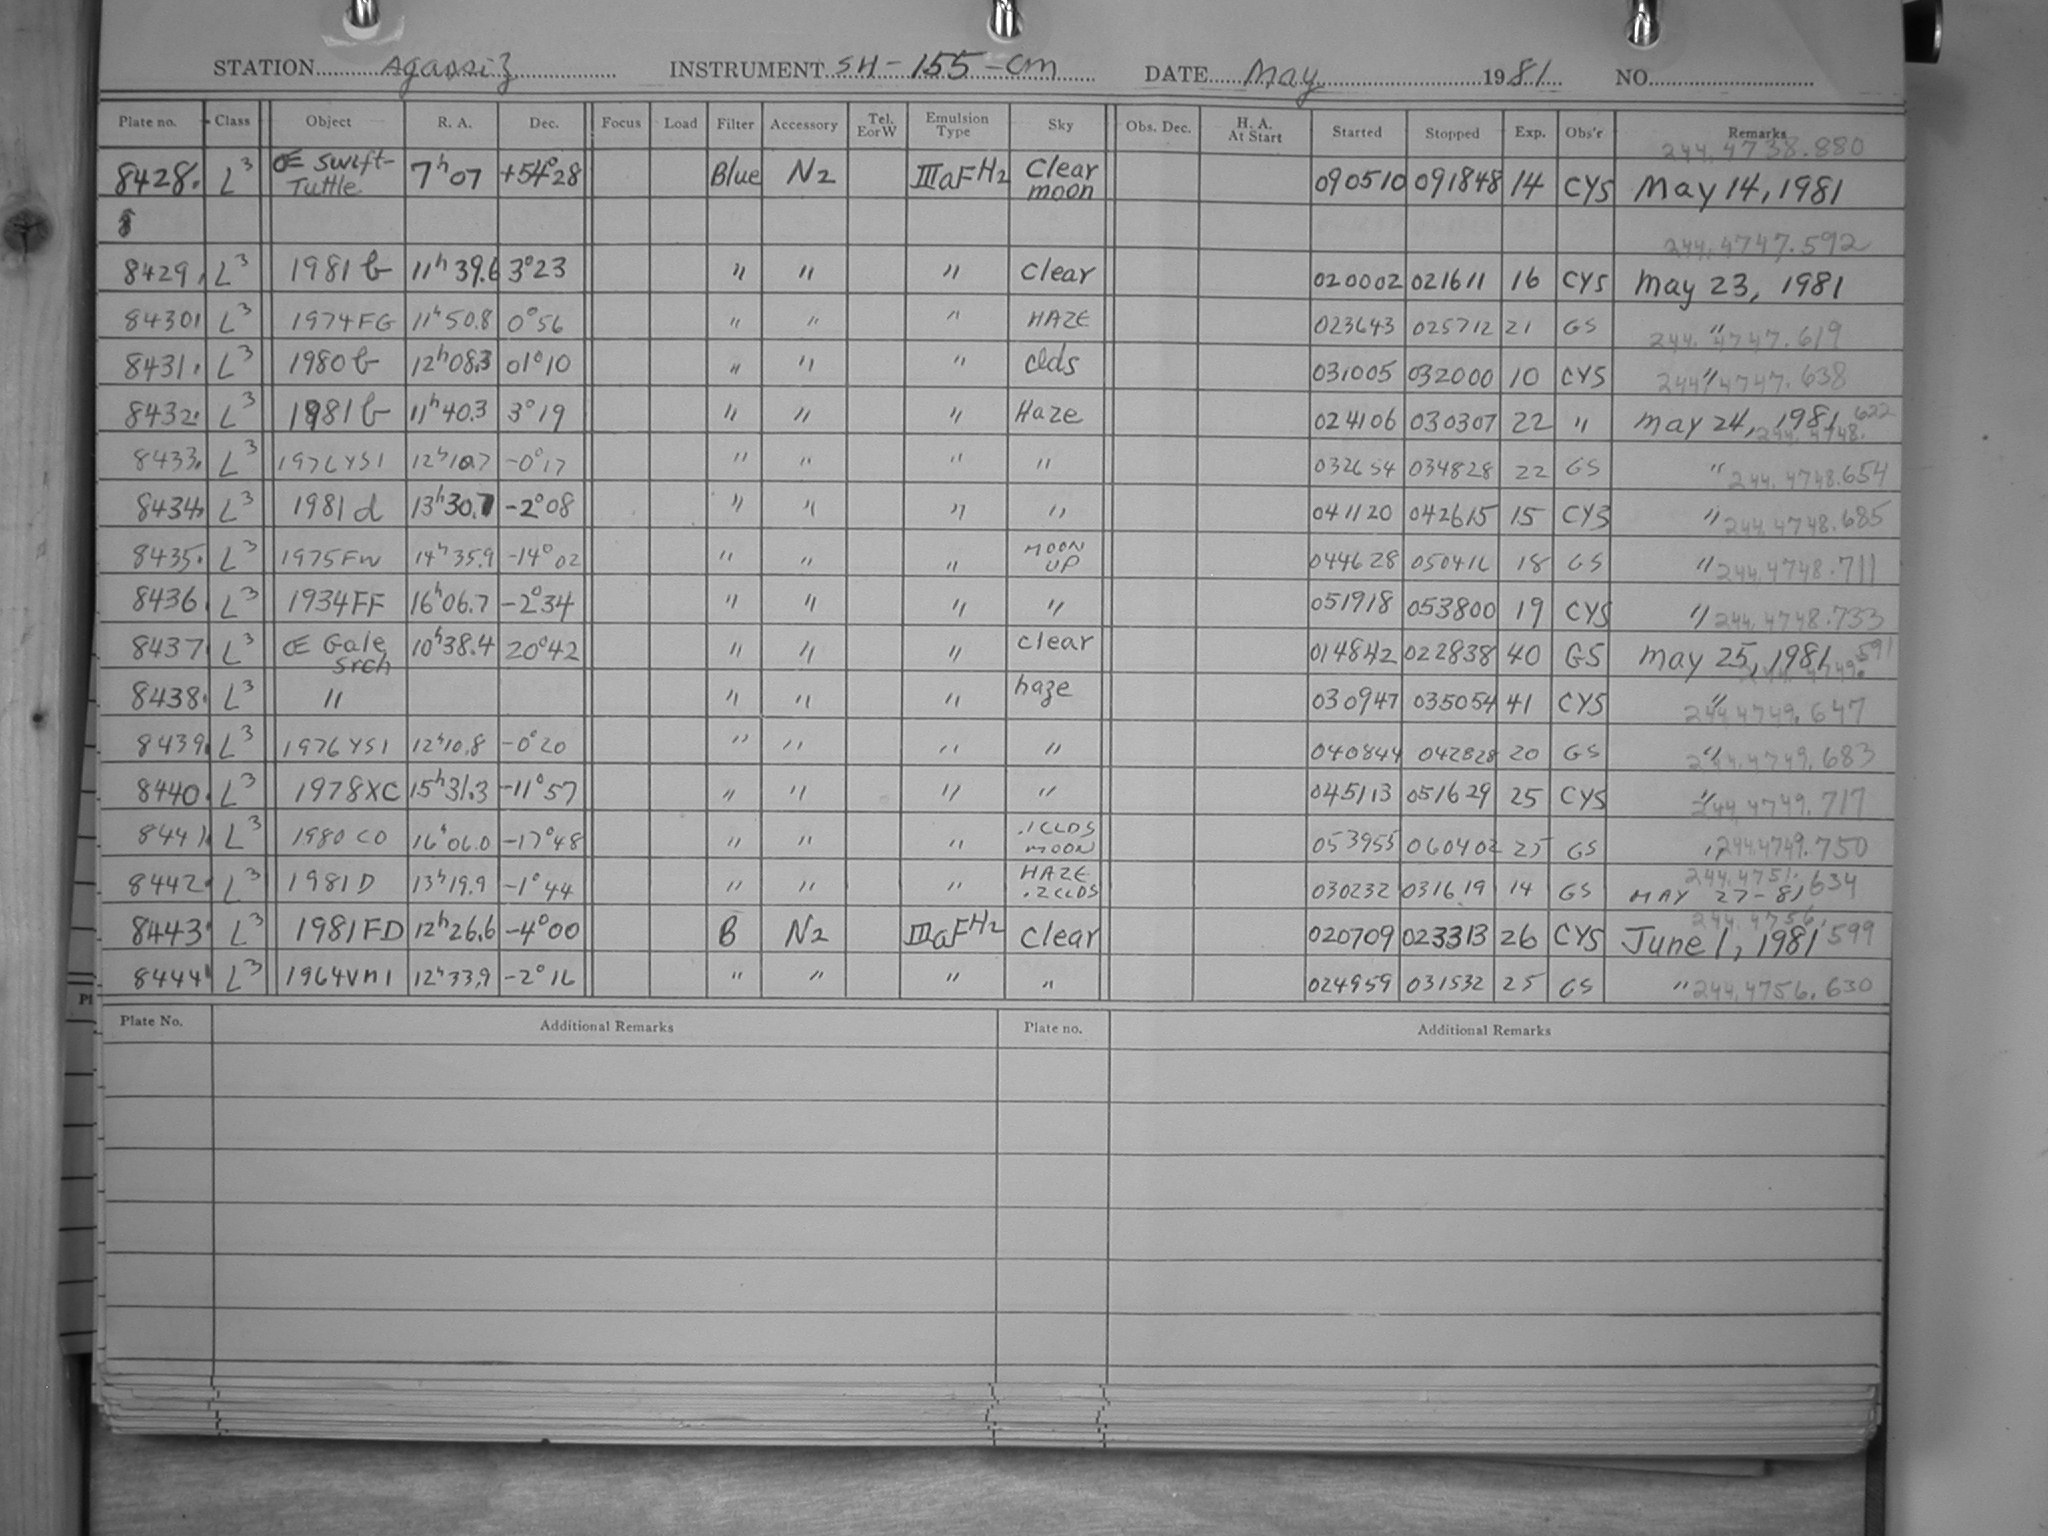 STATION Agassiz INSTRUMENT SH-155-cm DATE May 1981 NO.
Plate no. Class Object R. A. Dec. Focus Load Filter Accessory Tel. E or W Emulsion Type Sky Obs. Dec. H. A. At Start Started Stopped Exp. Obs'r Remarks
244.4738.880
8428 L3 Œ Swift-Tuttle 7h07 +54°28 Blue N2 IIIaFH2 Clear moon 090510 091848 14 CYS May 14, 1981
244.4747.592
8429 L3 1981 b 11h39.6 3°23 " " " Clear 020002 021611 16 CYS May 23, 1981
8430 L3 1974FG 11h50.8 0°56 " " " HAZE 023643 025712 21 GS " 244.4747.619
8431 L3 1980 b 12h08.3 01°10 " " " clds 031005 032000 10 CYS " 244.4747.638
8432 L3 1981 b 11h40.3 3°19 " " " Haze 024106 030307 22 " May 24, 1981 244.4748.622
8433 L3 1976YS1 12h10.7 -0°17 " " " " 032654 034828 22 GS " 244.4748.654
8434 L3 1981 d 13h30.7 -2°08 " " " " 041120 042615 15 CYS " 244.4748.685
8435 L3 1975FW 14h35.9 -14°02 " " " MOON UP 044628 050416 18 GS " 244.4748.711
8436 L3 1934FF 16h06.7 -2°34 " " " " 051918 053800 19 CYS " 244.4748.733
8437 L3 Œ Gale Srch 10h38.4 20°42 " " " clear 014842 022838 40 GS May 25, 1981 244.4749.591
8438 L3 " " " " haze 030947 035054 41 CYS " 244.4749.647
8439 L3 1976YS1 12h10.8 -0°20 " " " " 040844 042828 20 GS " 244.4749.683
8440 L3 1978XC 15h31.3 -11°57 " " " " 045113 051629 25 CYS " 244.4749.717
8441 L3 1980 CO 16h06.0 -17°48 " " " .1 CLDS MOON 053955 060402 25 GS " 244.4749.750
8442 L3 1981 D 13h19.9 -1°44 " " " HAZE .2 CLDS 030232 031619 14 GS MAY 27-81 244.4751.634
8443 L3 1981FD 12h26.6 -4°00 B N2 IIIaFH2 Clear 020709 023313 26 CYS June 1, 1981 244.4756.599
8444 L3 1964VM1 12h33.9 -2°16 " " " " 024959 031532 25 GS " 244.4756.630
Plate No. Additional Remarks Plate no. Additional Remarks